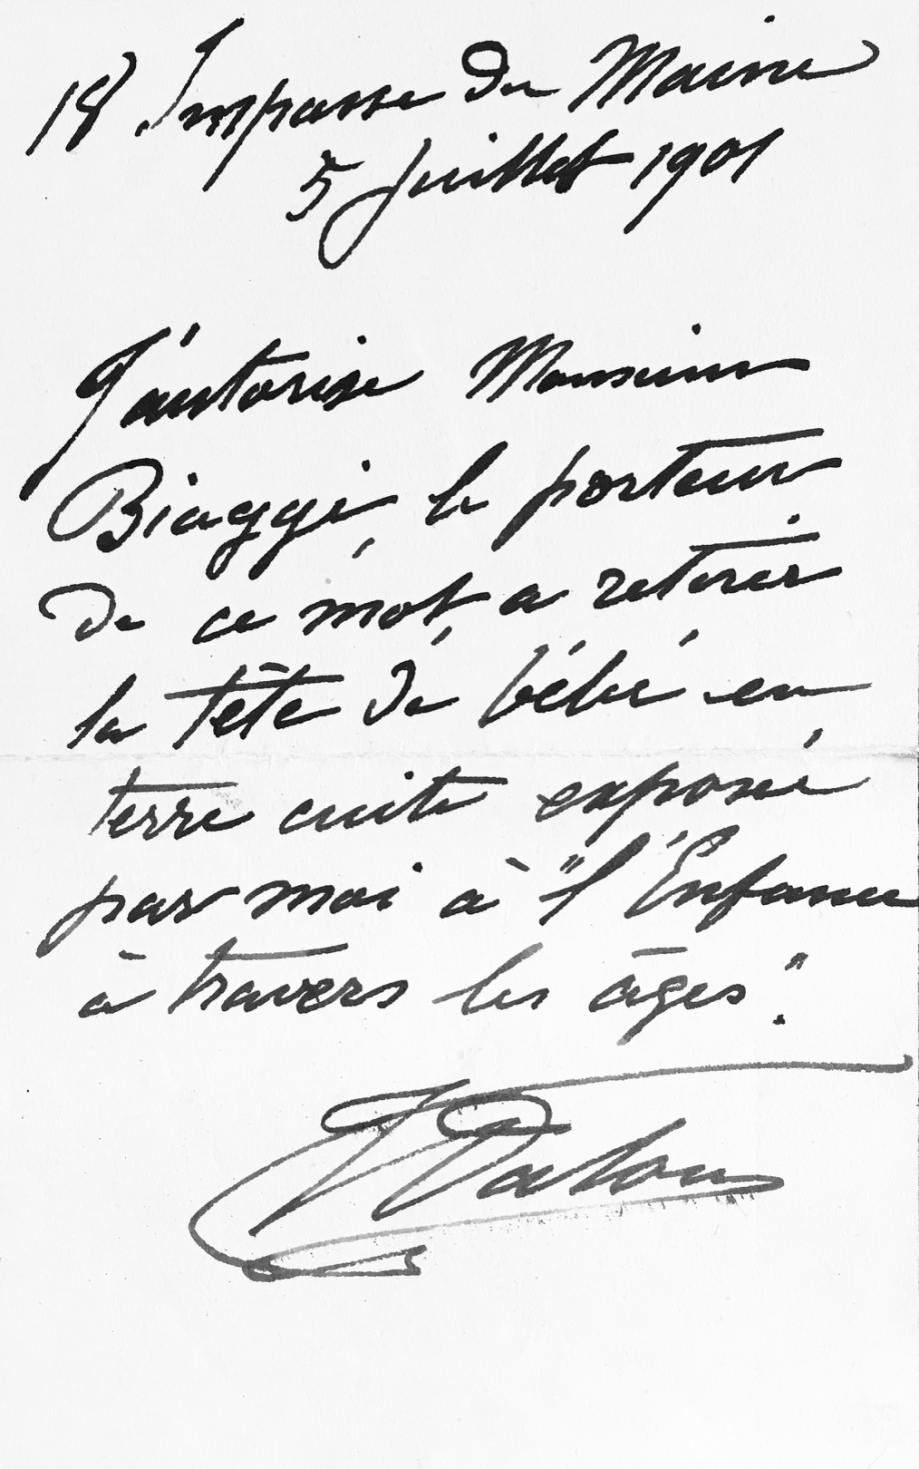 18 Impasse du Maine
5 Juillet 1901
J'autorise Monsieur
Biaggi, le porteur
de ce mot, a retirer
la tête de bébé en
terre cuite exposée
par moi à "l'Enfance
à travers les âges".
J Dalou